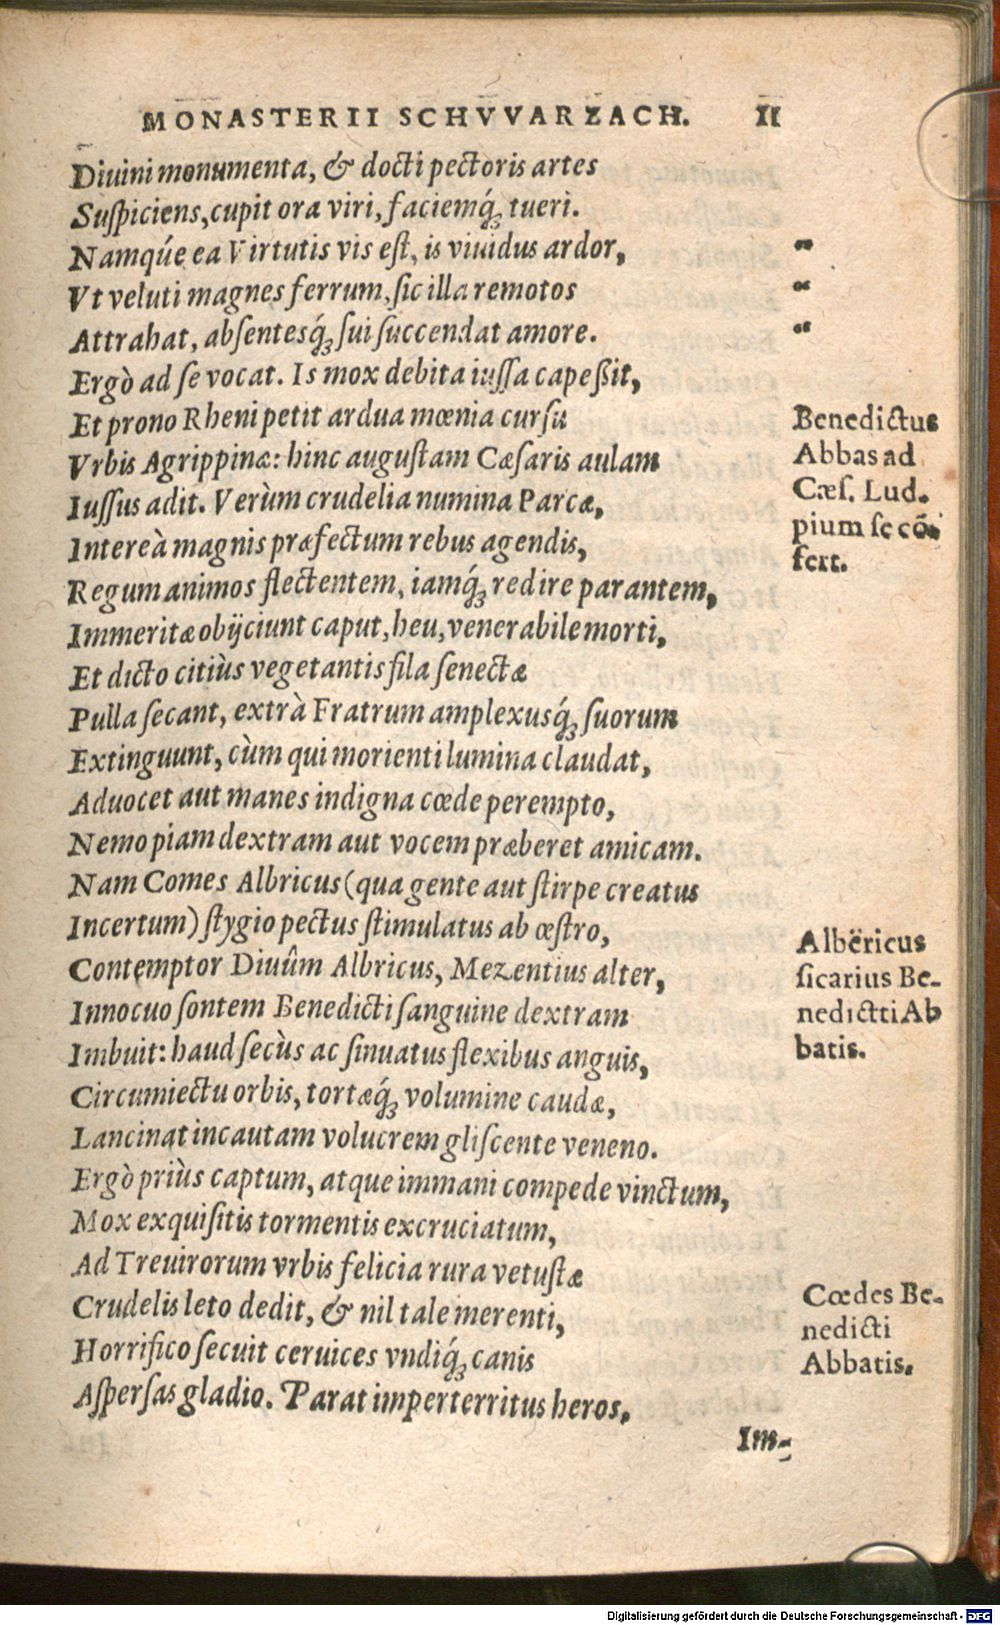 MONASTERII SCHVVARZACH. II
Diuini monumenta, & docti pectoris artes
Suſpiciens, cupit ora viri, faciemq́ꝫ tueri.
Namqúe ea Virtutis vis eſt, is viuidus ardor, „
Vt veluti magnes ferrum, ſic illa remotos „
Attrahat, abſentesq́ꝫ ſui ſuccendat amore. „
Ergò ad ſe vocat. Is mox debita iuſſa capeßit,
Et prono Rheni petit ardua mœnia curſu
Vrbis Agrippinæ: hinc auguſtam Cæſaris aulam
Iuſſus adit. Verùm crudelia numina Parcæ,
Intereà magnis præfectum rebus agendis,
Regum animos flectentem, iamq́ꝫ redire parantem,
Immeritæ obijciunt caput, heu, venerabile morti,
Et dicto citiùs vegetantis fila ſenectæ
Pulla ſecant, extrà Fratrum amplexusq́ꝫ ſuorum
Extinguunt, cùm qui morienti lumina claudat,
Aduocet aut manes indigna cœde perempto,
Nemo piam dextram aut vocem præberet amicam.
Nam Comes Albricus (qua gente aut ſtirpe creatus
Incertum) ſtygio pectus ſtimulatus ab œſtro,
Contemptor Diuûm Albricus, Mezentius alter,
Innocuo ſontem Benedicti ſanguine dextram
Imbuit: haud ſecùs ac ſinuatus flexibus anguis,
Circumiectu orbis, tortæq́ꝫ volumine caudæ,
Lancinat incautam volucrem gliſcente veneno.
Ergò priùs captum, atque immani compede vinctum,
Mox exquiſitis tormentis excruciatum,
Ad Treuirorum vrbis felicia rura vetuſtæ
Crudelis leto dedit, & nil tale merenti,
Horrifico ſecuit ceruices vndiq́ꝫ canis
Aſperſas gladio. Parat imperterritus heros,
Im-
Benedictus
Abbas ad
Cæſ. Lud.
pium ſe cō-
fert.
Albëricus
ſicarius Be-
nedictti Ab
batis.
Cœdes Be-
nedicti
Abbatis.
Digitalisierung gefördert durch die Deutsche Forschungsgemeinschaft - DFG